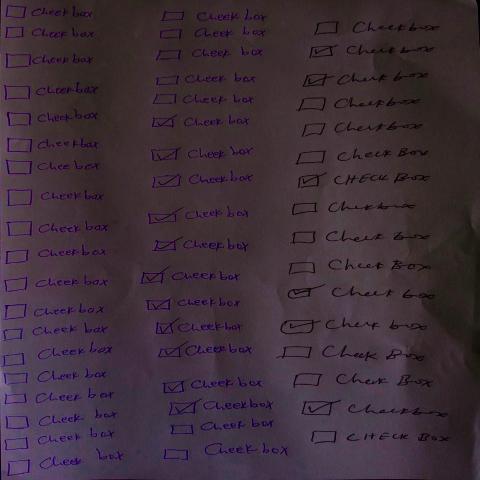 Cheekbox
Cheekbox
Cheekbox
Cheekbox
Cheekbox
Cheekbox
Chee box
Cheekbox
Cheekbox
Cheekbox
Cheekbox
Cheekbox
Cheek box
Cheekbox
Cheek box
Cheek box
Cheek box
Cheek box
Cheek box
Cheek box
Cheek box
Cheek box
Cheek box
Cheek box
Cheek box
Cheek box
Cheek box
Cheek box
Cheek box
Cheek box
Cheek box
Cheekbox
Cheekbox
Cheek box
Cheekbox
Cheek box
Cheek box
Checkbox
Checkbox
Check box
Checkbox
Checkbox
Check Box
CHECK BOX
Check box
Check Box
Check Box
Check box
Check box
Check Box
Check Box
Checkbox
CHECK BOX